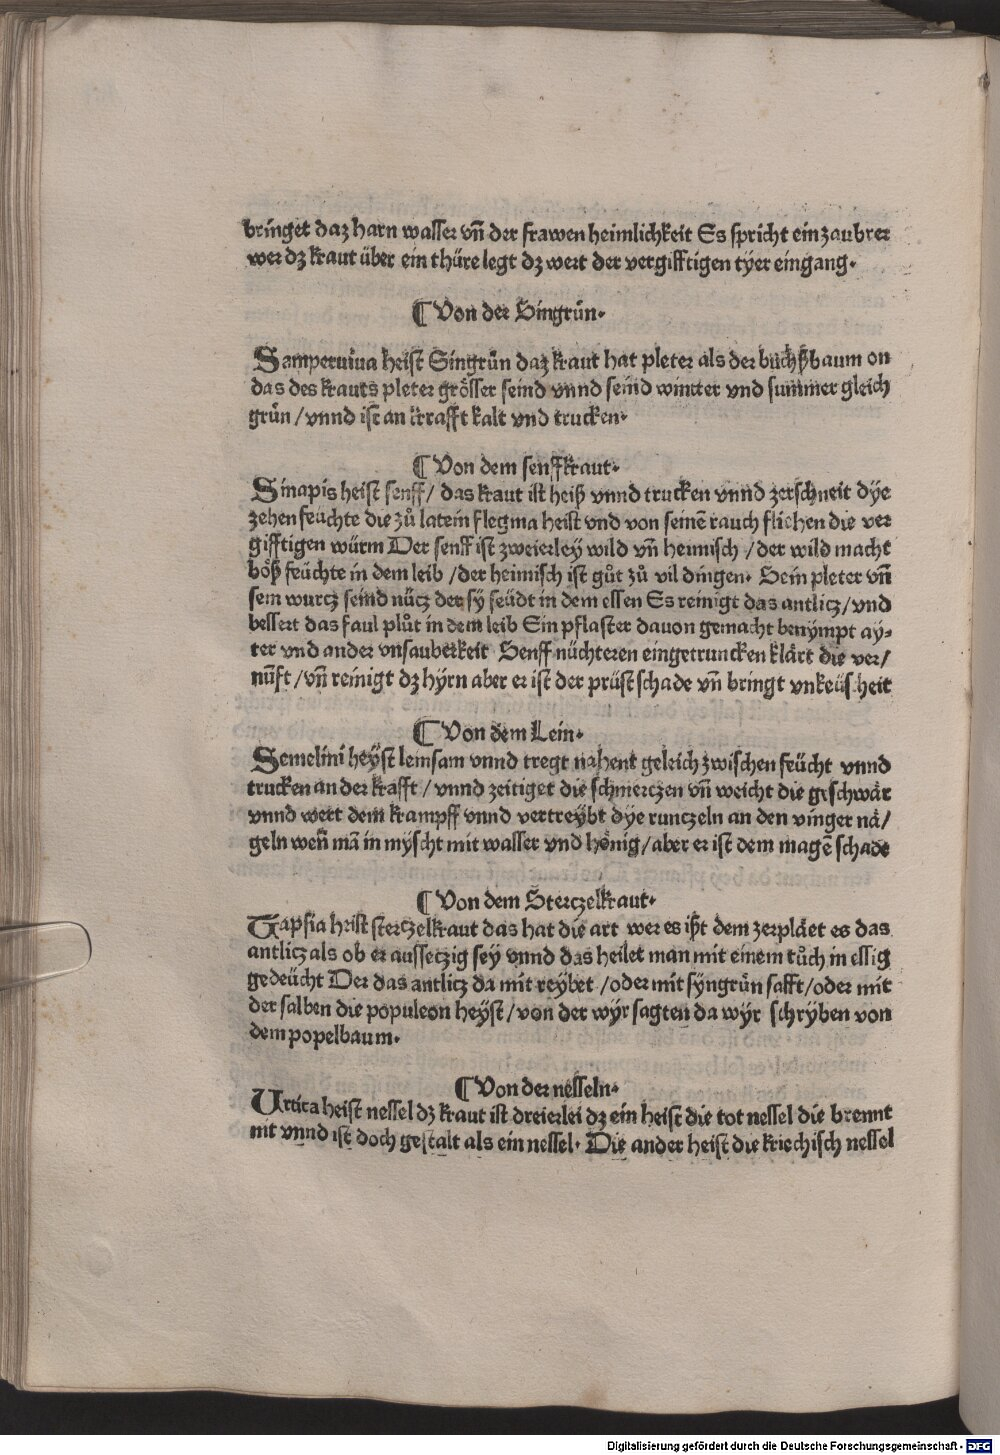 bringet daz harn wasser vñ der frawen heimlichkeit Es spricht ein zaubrer
wer dz kraut über ein thüre legt dz wert der vergifftigen tÿer eingang.
¶ Von der Singrün.
Samperuiua heist Singrün daz kraut hat pleter als der buchßbaum on
das des krauts pleter grösser seind vnnd seind wintter vnd summer gleich
grün / vnnd ist an krafft kalt vnd trucken.
¶ Von dem senffkraut.
Sinapis heist senff / das kraut ist heiß vnnd trucken vnnd zerschneit dÿe
zehen feüchte die zů latein flegma heist vnd von seinē rauch fliehen die ver
gifftigen würm Der senff ist zweierleÿ wild vñ heimisch / der wild macht
böß feüchte in dem leib / der heimisch ist gůt zů vil dingen. Sein pleter vñ
sein wurcz seind nücz der sÿ seüdt in dem essen Es reinigt das antlicz / vnd
bessert das faul plůt in dem leib Ein pflaster dauon gemacht benÿmpt aÿ⸗
ter vnd ander vnsauberkeit Senff nüchteren eingetruncken klärt die ver /
nūft / vñ reinigt dz hÿrn aber er ist der prüst schade vñ bringt vnkeüscheit
¶ Von dem Lein.
Semelini heÿst leinsam vnnd tregt nahent geleich zwischen feücht vnnd
trucken an der krafft / vnnd zeitiget die schmerczen vñ weicht die geschwär
vnnd wert dem krampff vnnd vertreÿbt dÿe runczeln an den vinger nä /
geln weñ mā in mÿscht mit wasser vnd hönig / aber er ist dem magē schade
¶ Von dem Sterczelkraut.
Tapsia heist sterczelkraut das hat die art wer es ißt dem zerpläet es das
antlicz als ob er aussetzig seÿ vnnd das heilet man mit einem tůch in essig
gedeücht Der das antlicz da mit reÿbet / oder mit sÿngrün safft / oder mit
der salben die populeon heÿst / von der wÿr sagten da wÿr schrÿben von
dem popelbaum.
¶ Von der nesseln.
Urtica heist nessel dz kraut ist dreierlei dz ein heist die tot nessel die brennt
nit vnnd ist doch gestalt als ein nessel. Die ander heist die kriechisch nessel
Digitalisierung gefördert durch die Deutsche Forschungsgemeinschaft - DFG